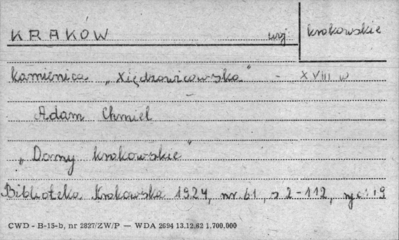 KRAKÓW woj krakowskie
kamienica „Xiędzowicowska" - XVIII w
Adam Chmiel
„Domy krakowskie"
Biblioteka Krakowska 1924, nr. 61, s 2-112, ryc: 19
CWD - B-15-b, nr 2827/ZW/P — WDA 2694 13.12.62 1.700.000